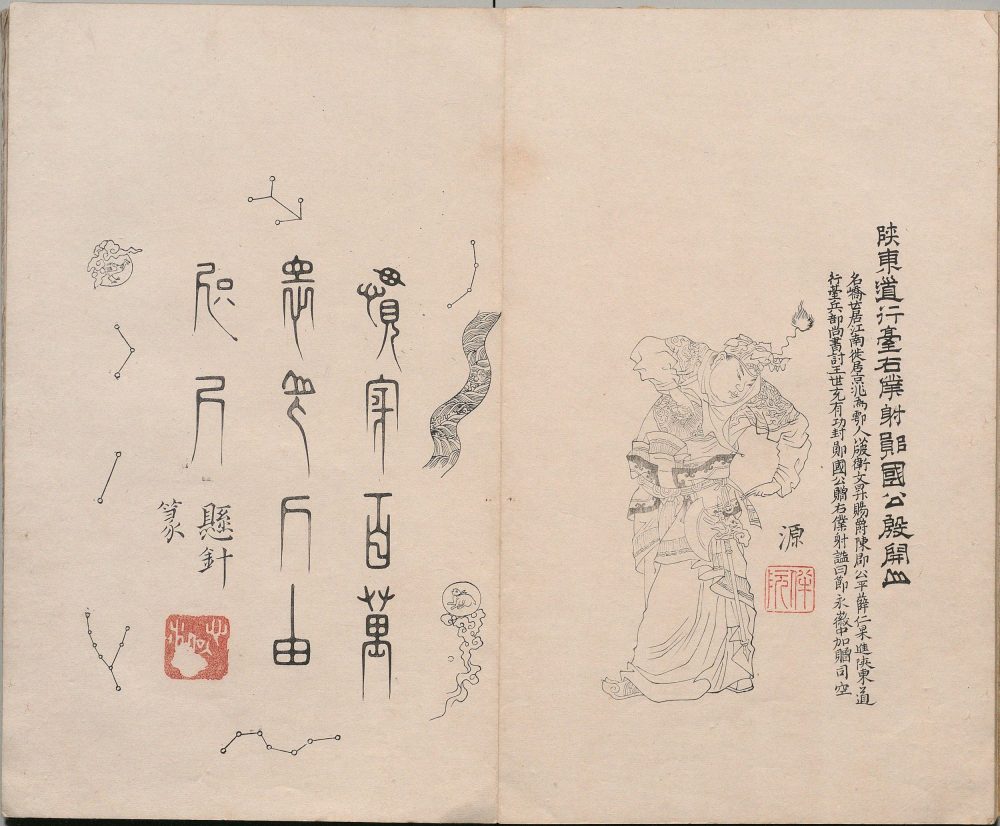 陝東道行臺右僕射鄖國公殷開山
名嶠世居江南徙居京兆為鄠人以破衛文昇賜爵陳郡公平薛仁果進陝東道
行臺兵部尚書討王世充有功封鄖國公贈右僕射諡曰節永徽中加贈司空
源
伴阮
百萬
眾由
咫尺
懸針
篆